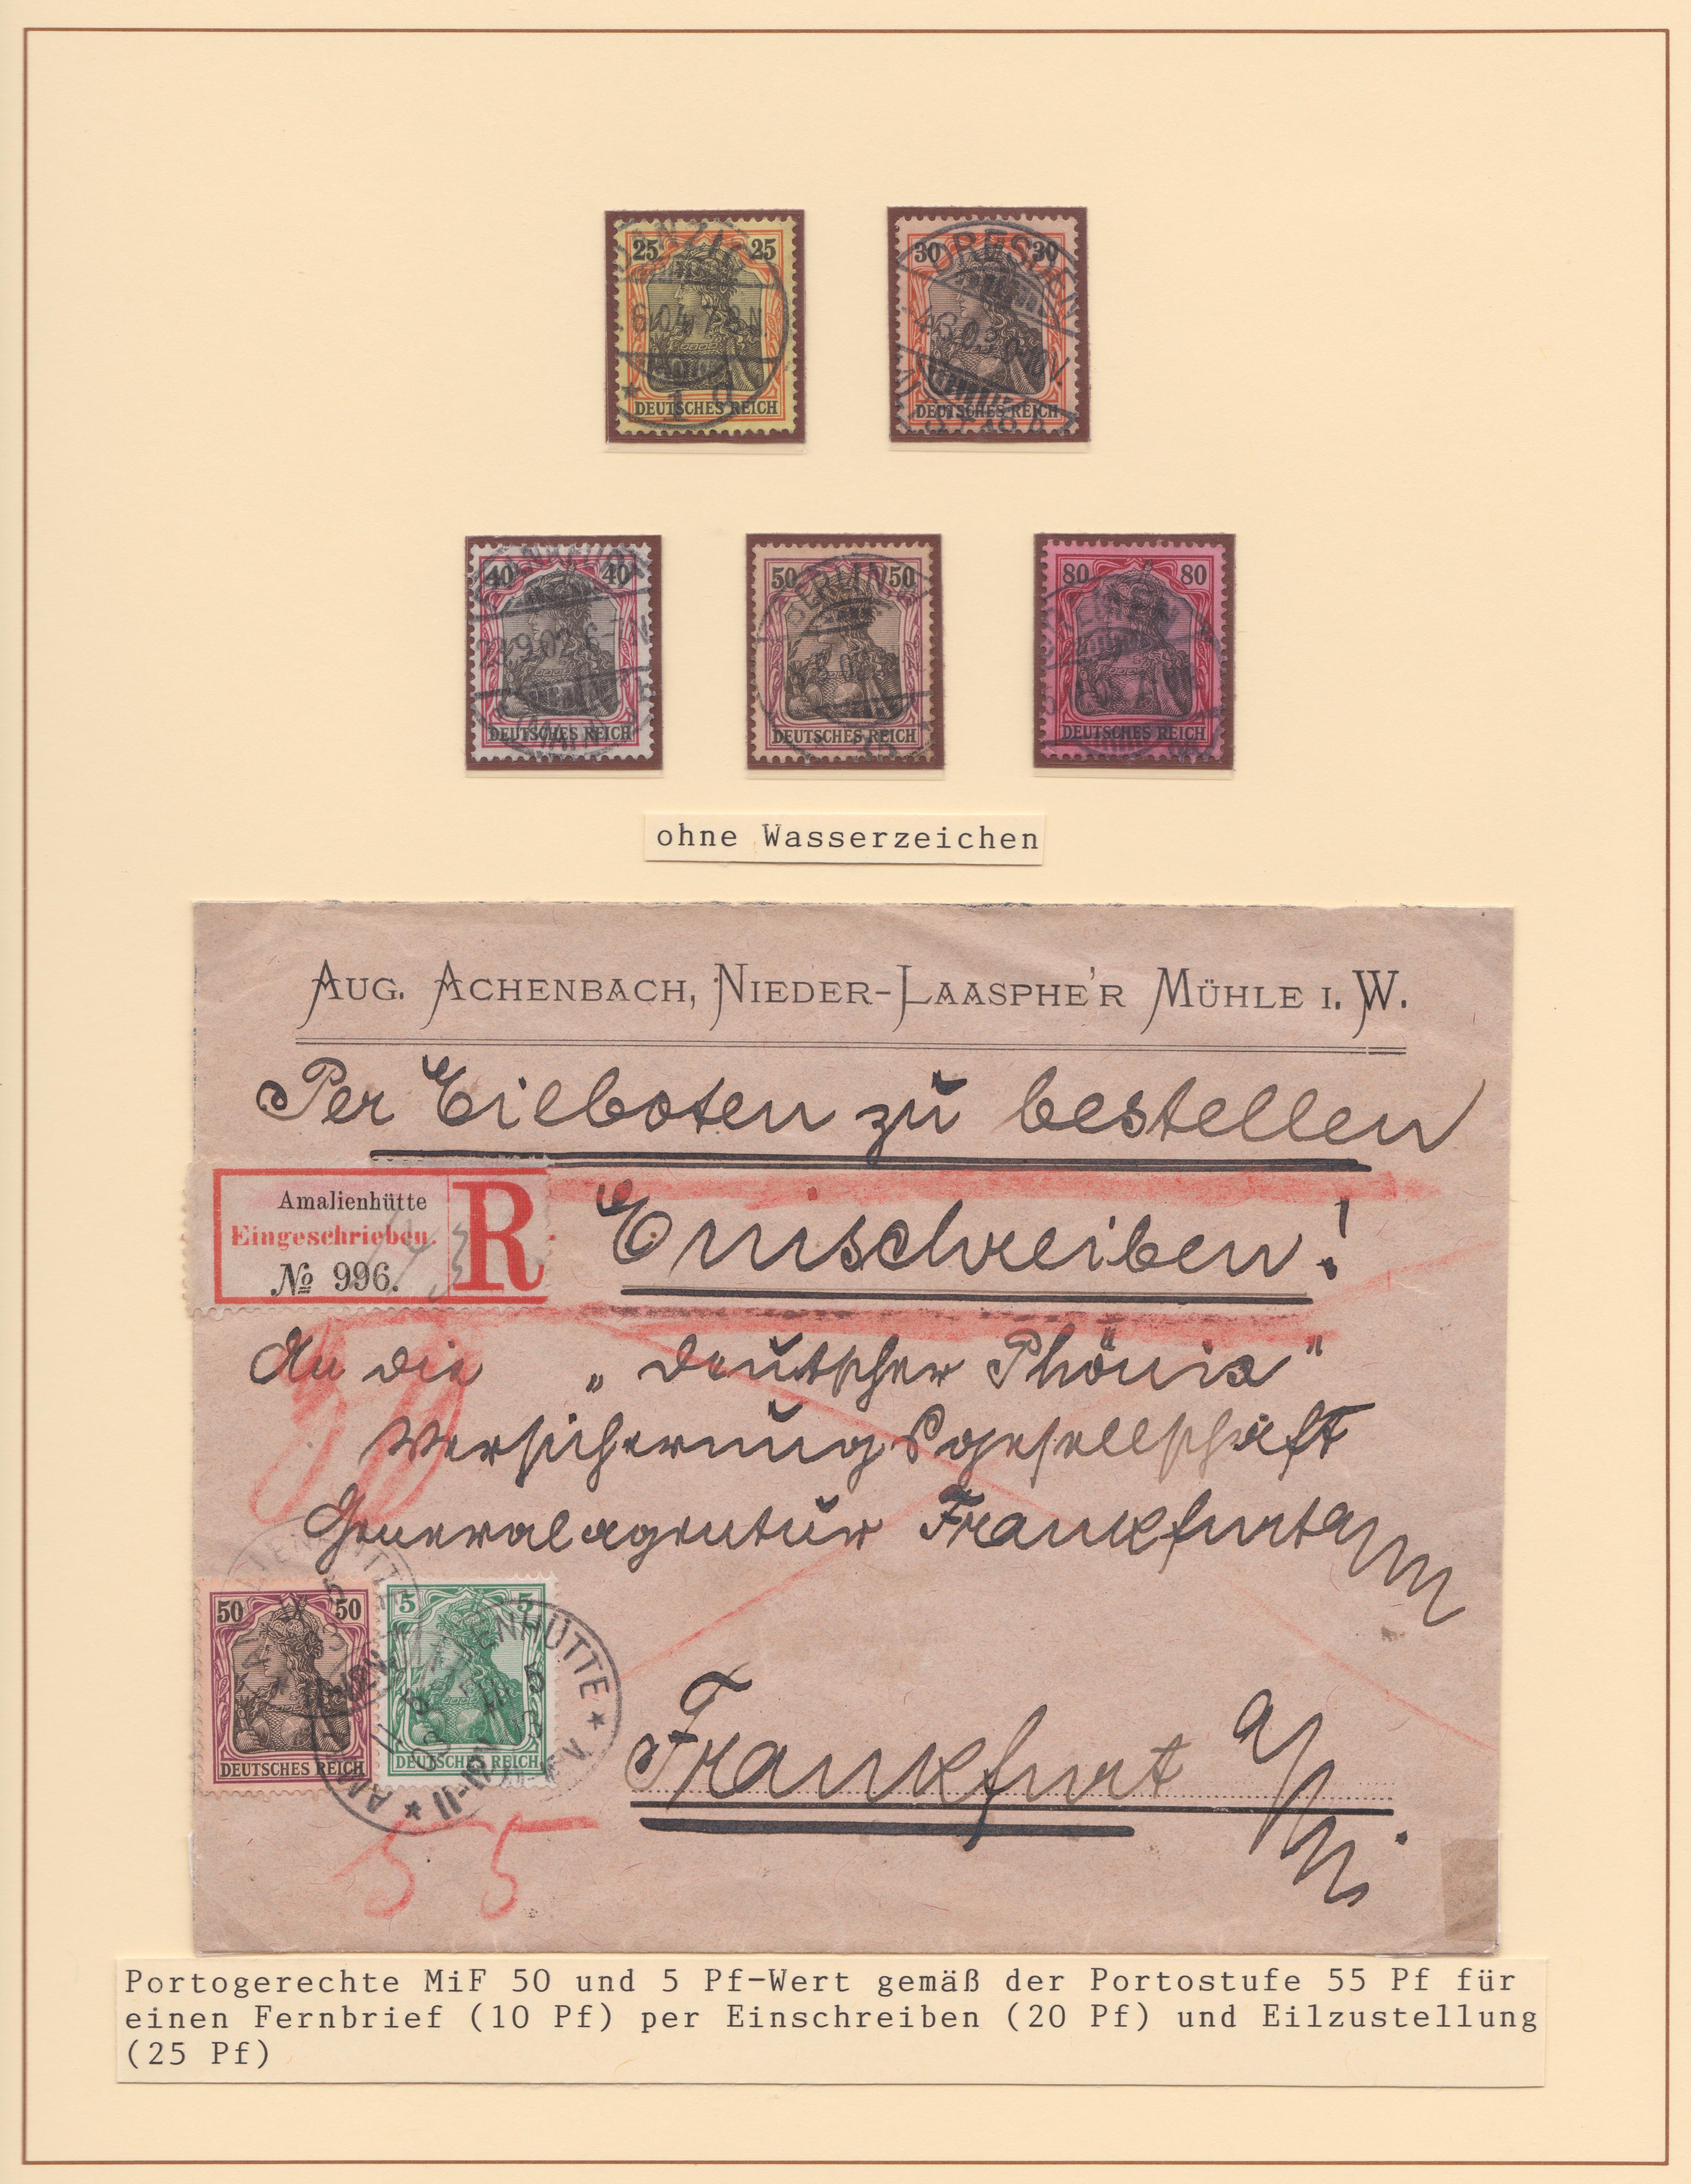 DANZIG
25 25
6 04 7-8 N.
* 1 d
DEUTSCHES REICH
DRESDEN
30 30
DEUTSCHES REICH
40 40
9 02 6-7 N
DEUTSCHES REICH
BERLIN
50 50
DEUTSCHES REICH
80 80
DEUTSCHES REICH
ohne Wasserzeichen
AUG. ACHENBACH, NIEDER-LAASPHE'R MÜHLE I. W.
Per Eilboten zu bestellen
Amalienhütte
Eingeschrieben.
No 996.
R
Einschreiben!
An die „Deutscher Phönix"
Versicherungsgesellschaft
Generalagentur Frankfurt a/M
50 50
DEUTSCHES REICH
5 5
DEUTSCHES REICH
AMALIENHÜTTE
Frankfurt a/M.
55
Portogerechte MiF 50 und 5 Pf-Wert gemäß der Portostufe 55 Pf für
einen Fernbrief (10 Pf) per Einschreiben (20 Pf) und Eilzustellung
(25 Pf)